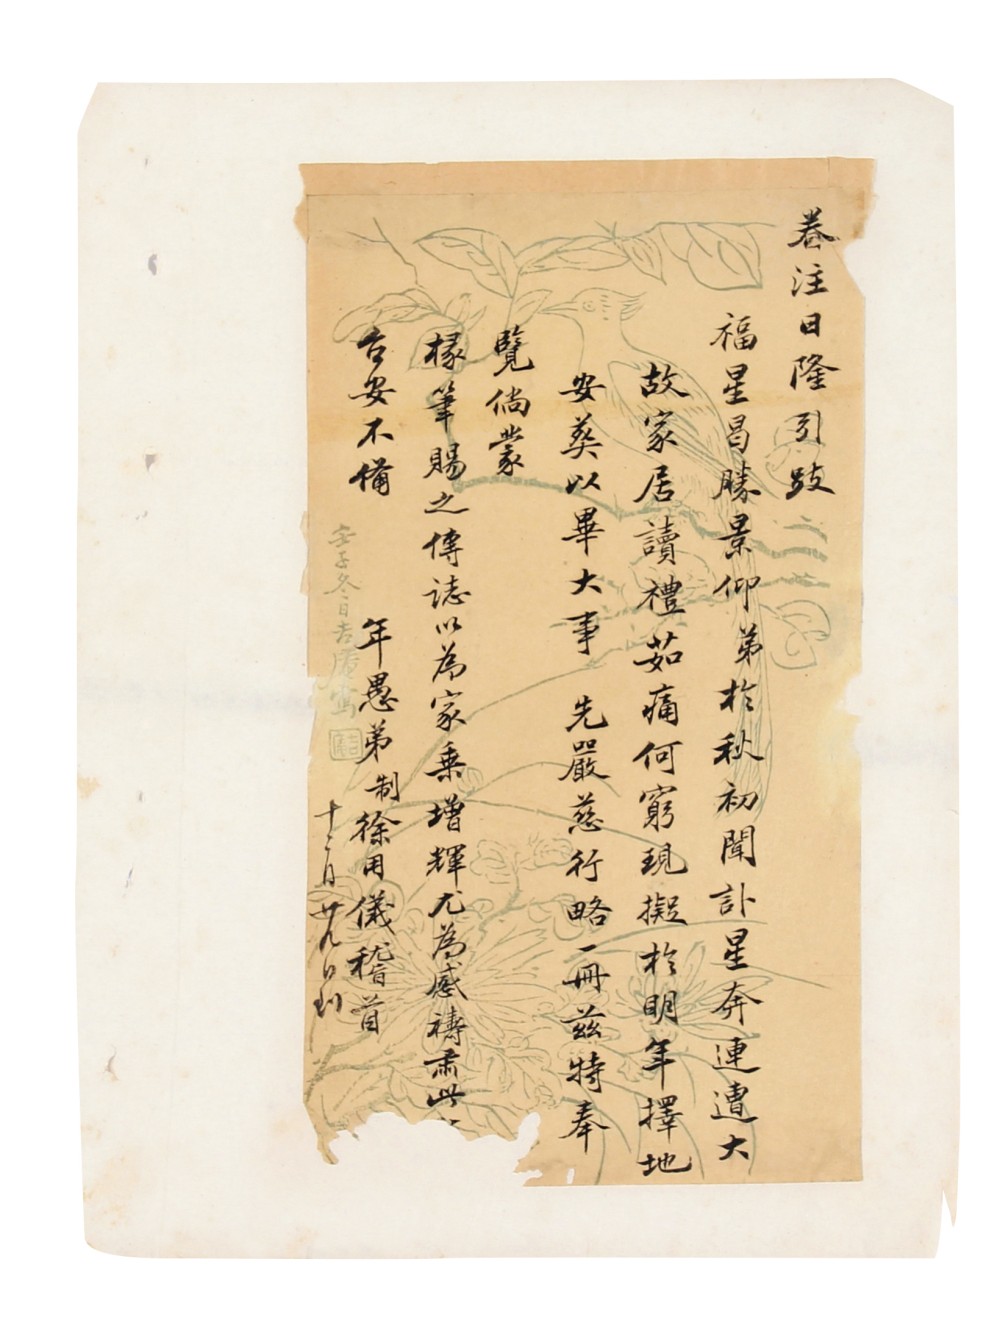 眷注日隆引跂
福星昌勝景仰弟於秋初聞訃星奔連遭大
故家居讀禮茹痛何窮現擬於明年擇地
安葬以畢大事 先嚴慈行略一冊茲特奉
覽倘蒙
椽筆賜之傳誌以為家乘增輝尤為感禱肅此
台安不備
年愚弟制徐用儀稽首
十二月廿九日到
壬子冬日吉庵寫